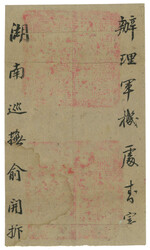 辦理軍機處封寄
湖南巡撫俞開拆